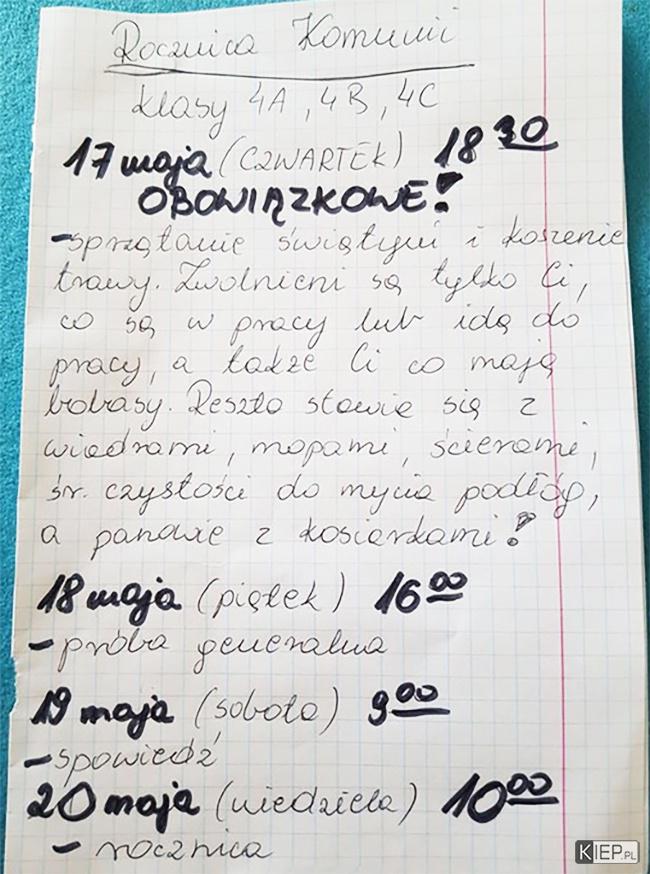 Rocznica Komunii
klasy 4A, 4B, 4C
17 maja (CZWARTEK) 18 30
OBOWIĄZKOWE!
- sprzątanie świątyni i koszenie
trawy. Zwolnieni są tylko Ci,
co są w pracy lub idą do
pracy, a także Ci co mają
bobasy. Reszta stawia się z
wiadrami, mopami, ścierami,
śr. czystości do mycia podłóg,
a panowie z kosiarkami!
18 maja (piątek) 16 00
- próba generalna
19 maja (sobota) 9 00
- spowiedź
20 maja (niedziela) 10 00
- rocznica
KIEP.PL